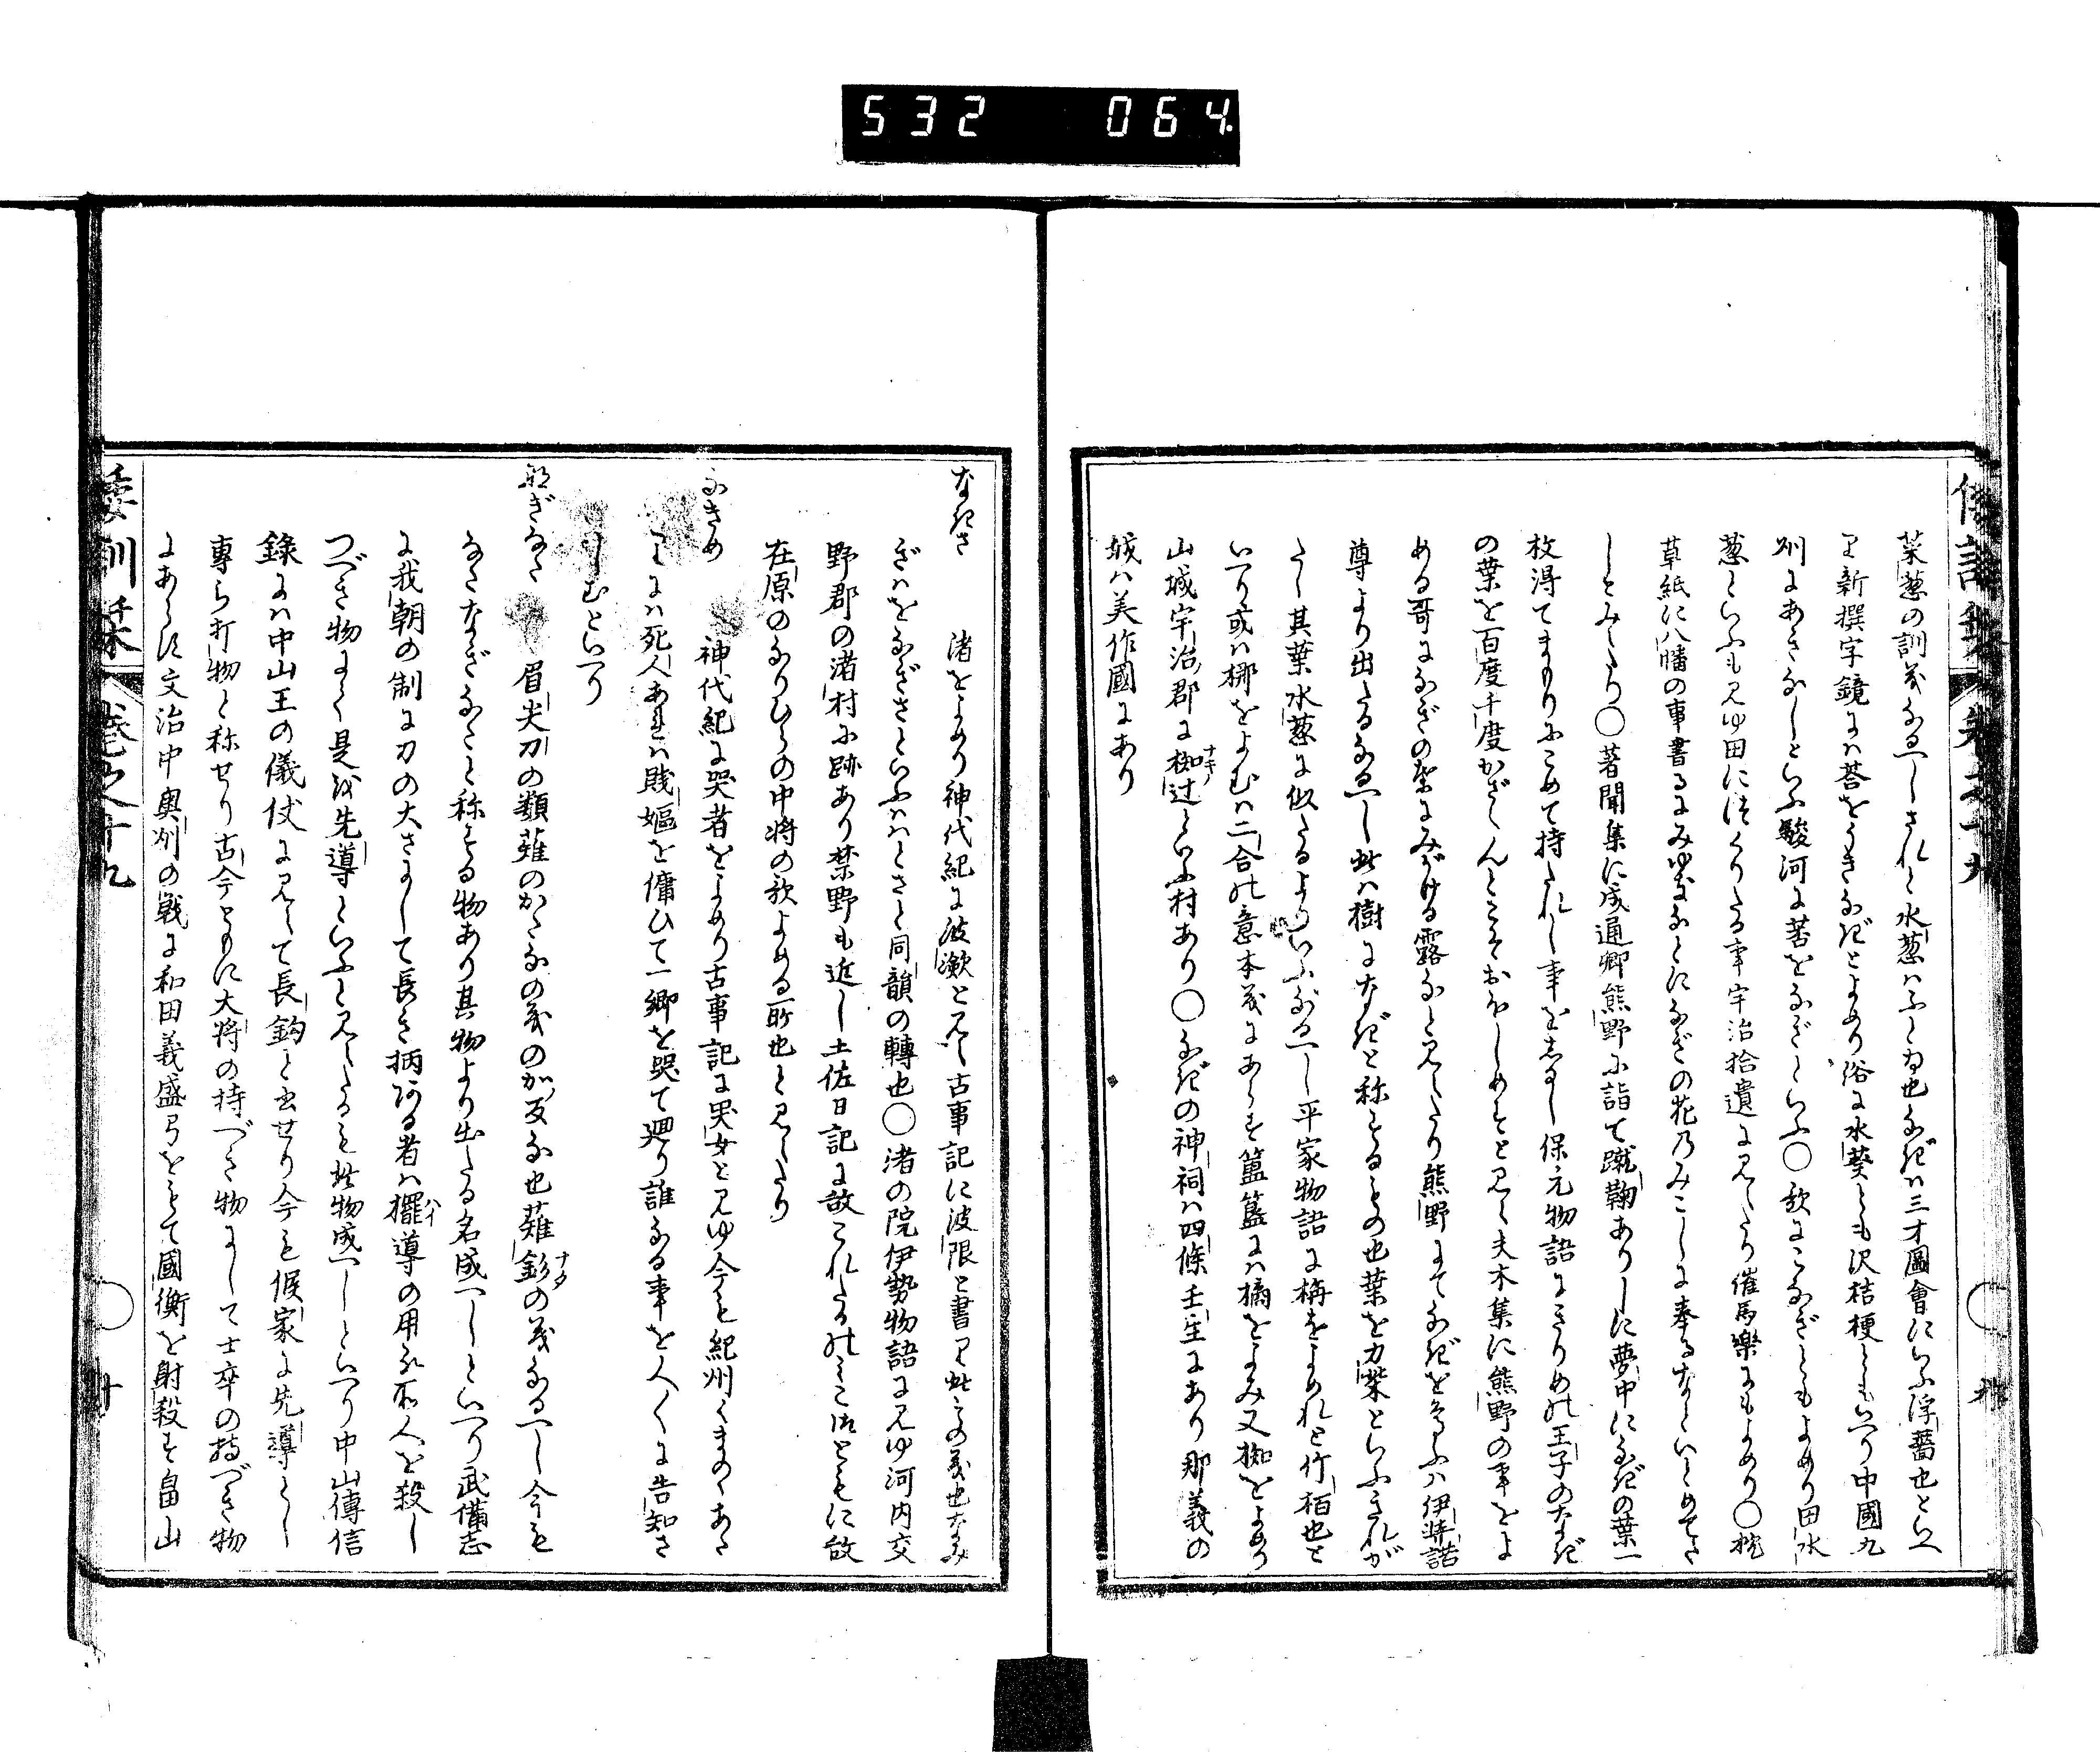 532 064
菜葱の訓義なるへしされと水葱ハふとゐ也なぎハ三才圖會にいふ浮薔也といへ
り新撰字鏡にハ荅をうきなぎとよめり俗に水葵とも沢桔梗ともいへり中國九
州にあさなしといふ駿河に苦をなぎといふ○歌にこなぎともよめり田水
葱といふも見ゆ田に作りたる事宇治拾遺に見えたり催馬樂にもよめり○枕
草紙に八幡の事書るにみゆきなとになぎの花乃みこしに奉るなといとめてた
しとみえたり○著聞集に成通卿熊野に詣て蹴鞠ありしに夢中になぎの葉一
枚得てまもりにこめて持たれし事をしるし保元物語にきりめの王子のなぎ
の葉を百度千度かざゝんとこそおほしめすと見え夫木集に熊野の事をよ
める哥になぎの葉にみがける露なと見えたり熊野にてなぎをたふハ伊弉諾
尊より出たるなるへし此ハ樹になぎと称するもの也葉を力柴といふされが
たし其葉水葱に似たるよりいふなるへし平家物語に梅をよめれと竹栢也と
いへり或ハ梛をよむハ二合の意本義にあらす簠簋にハ橘をよみ又椥をよめり
山城宇治郡に椥辻ナキノといふ村あり○なぎの神祠ハ四條壬生にあり那義の
城ハ美作國にあり
倭訓栞 卷之十九
なぎさ 渚をよめり神代紀に波瀲と見え古事記に波限と書り此の義也なみ
ぎハをなぎさといふハはとさと同韻の轉也○渚の院伊勢物語に見ゆ河内交
野郡の渚村に跡あり禁野も近し土佐日記に故これたかのみこ御ともに故
在原のなりひらの中将の歌よめる所也と見えたり
なきめ 神代紀に哭者をよめり古事記に哭女と見ゆ今も紀州くまのゝあた
りにハ死人あれハ賎嫗を傭ひて一郷を哭て廻り誰なる事を人々に告知さ
しむといへり
なぎなた 眉尖刀の類薙のかたなの義のか反な也薙釤ナタの義なるへし今も
なたなぎなたと称する物あり其物より出たる名成へしといへり武備志
に我朝の制に刀の大さにして長き柄ある者ハ擺ハイ導の用不人を殺し
つべき物にく是を先導といふと見えたるも此物成へしといへり中山傳信
錄にハ中山王の儀仗に見えて長鈎と書せり今も候家に先導とし
專ら打物と称せり古今ともに大将の持べき物にして士卒の持べき物
にあらす文治中奥州の戰に和田義盛弓をもて國衡を射殺す畠山
倭訓栞 卷之十九 ○ 廿